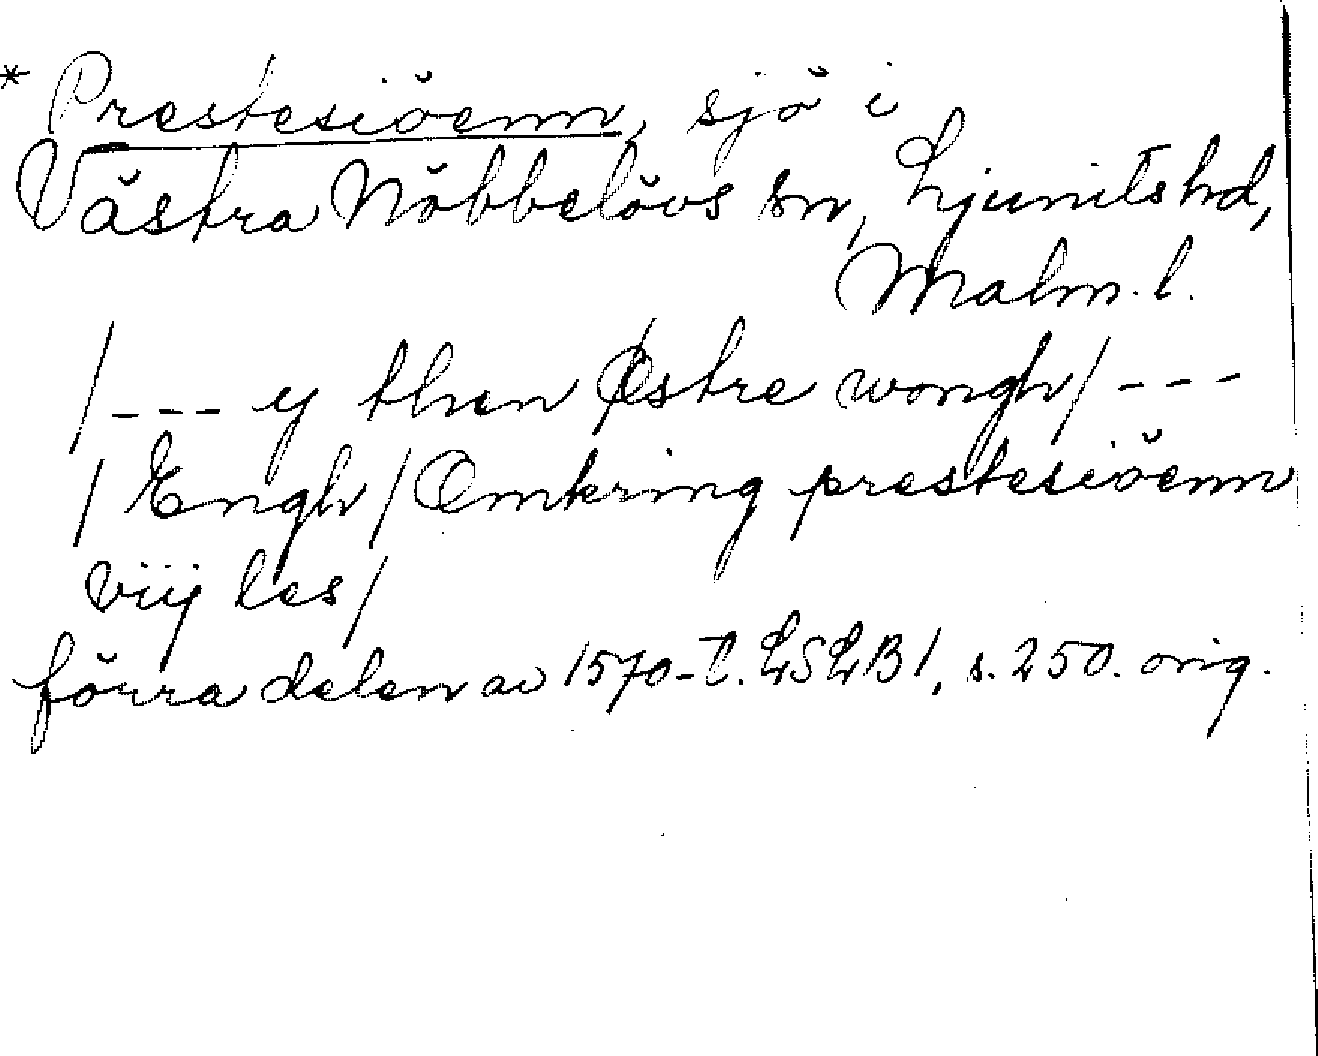 * Prestesiöenn, sjö i
Västra Nöbbelövs sn, Ljunits hd,
Malm. l.
/--- y then Østre wongh/ ---
/ Engh / Omkring prestesiöenn
viij les /
förra delen av 1570-t. LSLB 1, s. 250. orig.